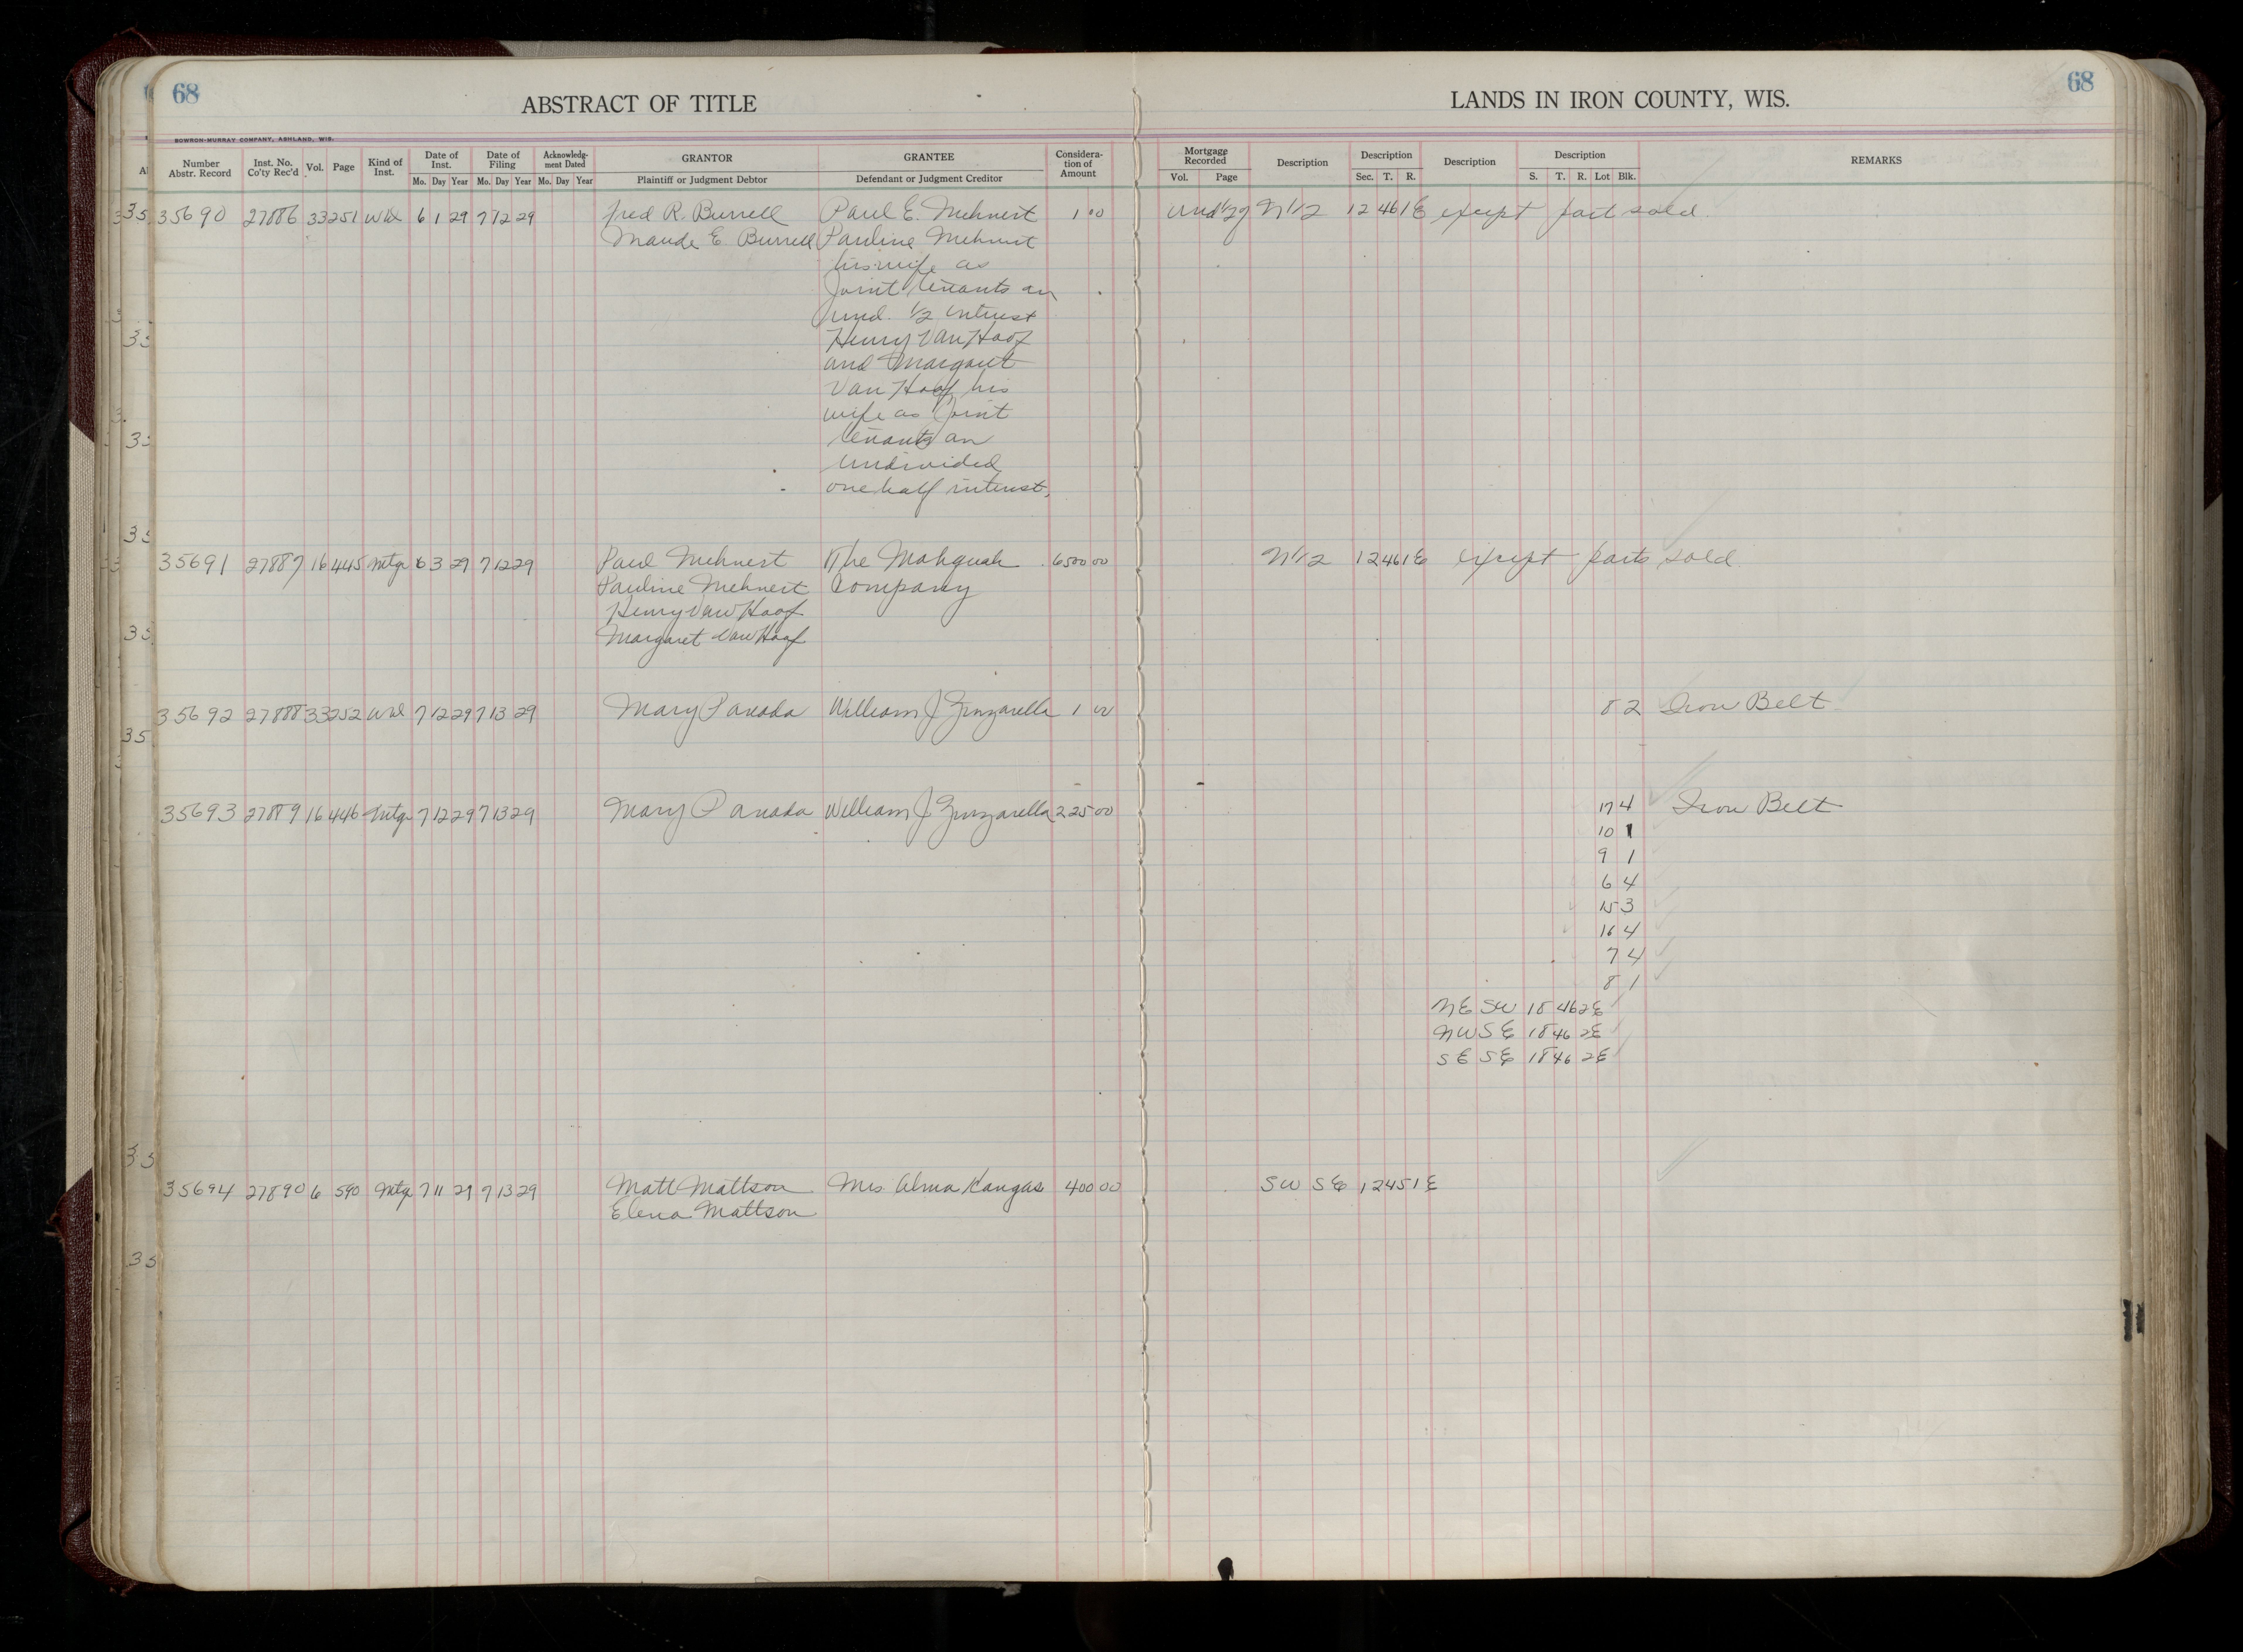 68
ABSTRACT OF TITLE
LANDS IN IRON COUNTY, WIS.
68
BOWRON-MURRAY COMPANY, ASHLAND, WIS.
Number Abstr. Record Inst. No. Co'ty Rec'd Vol. Page Kind of Inst. Date of Inst. Date of Filing Acknowledgment Dated GRANTOR GRANTEE Consideration of Amount Mortgage Recorded Description Description Description Description REMARKS
Mo. Day Year Mo. Day Year Mo. Day Year Plaintiff or Judgment Debtor Defendant or Judgment Creditor Vol. Page Sec. T. R. S. T. R. Lot Blk.
35690 27886 33 251 Wd 6 1 29 7 12 29 Fred R. Burrell Paul E. Mehnert 1 00 Und 1/2 of N 1/2 12 46 1E except part sold
Maude E Burrell Pauline Mehnert
his wife as
Joint tenants an
und. 1/2 interest
Henry Van Hoof
and Margaret
Van Hoof his
wife as Joint
tenants an
undivided
one half interest.
35691 27887 16 445 Mtg 6 3 29 7 12 29 Paul Mehnert The Mahquah 6500 00 N 1/2 12 46 1E except parts sold
Pauline Mehnert Company
Henry Van Hoof
Margaret Van Hoof
35692 27888 33 252 Wd 7 12 29 7 13 29 Mary Panada William J Zinzarella 1 00 8 2 Iron Belt
35693 27889 16 446 Mtg 7 12 29 7 13 29 Mary Panada William J Zinzarella 225 00 17 4 Iron Belt
10 1
9 1
6 4
15 3
16 4
7 4
8 1
NE SW 18 46 2E
NW SE 18 46 2E
SE SE 18 46 2E
35694 27890 6 590 Mtg 7 11 29 7 13 29 Matt Mattson Mrs. Alma Kangas 400 00 SW SE 12 45 1E
Elena Mattson